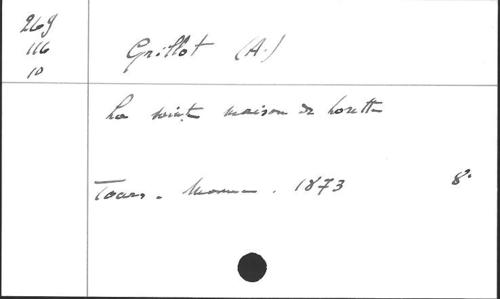 269
116
10
Grillot (A.)
La sainte maison de Lorette
Tours. Mame. 1873 8°